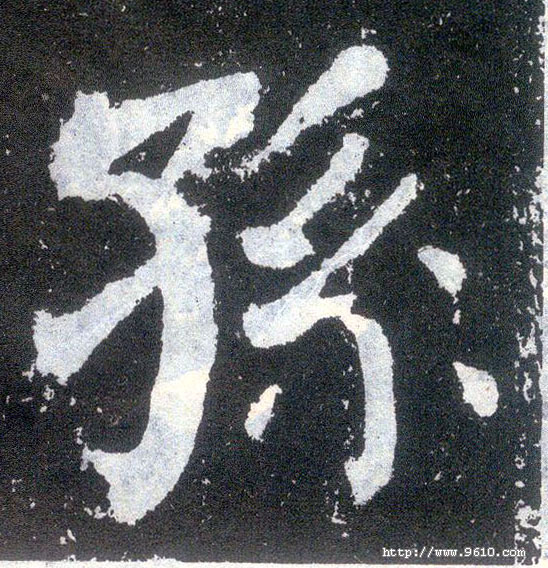 孫
http://www.9610.com